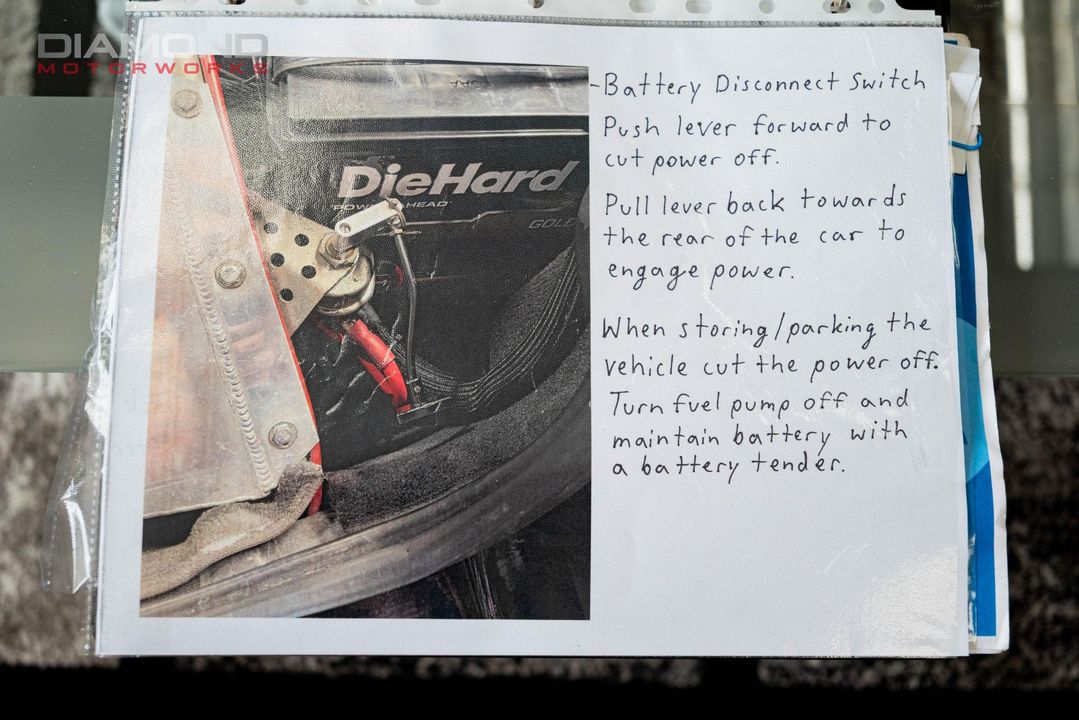 DIAMOND
MOTORWORKS
DieHard
GOLD
-Battery Disconnect Switch
Push lever forward to
cut power off.
Pull lever back towards
the rear of the car to
engage power.
When storing/parking the
vehicle cut the power off.
Turn fuel pump off and
maintain battery with
a battery tender.